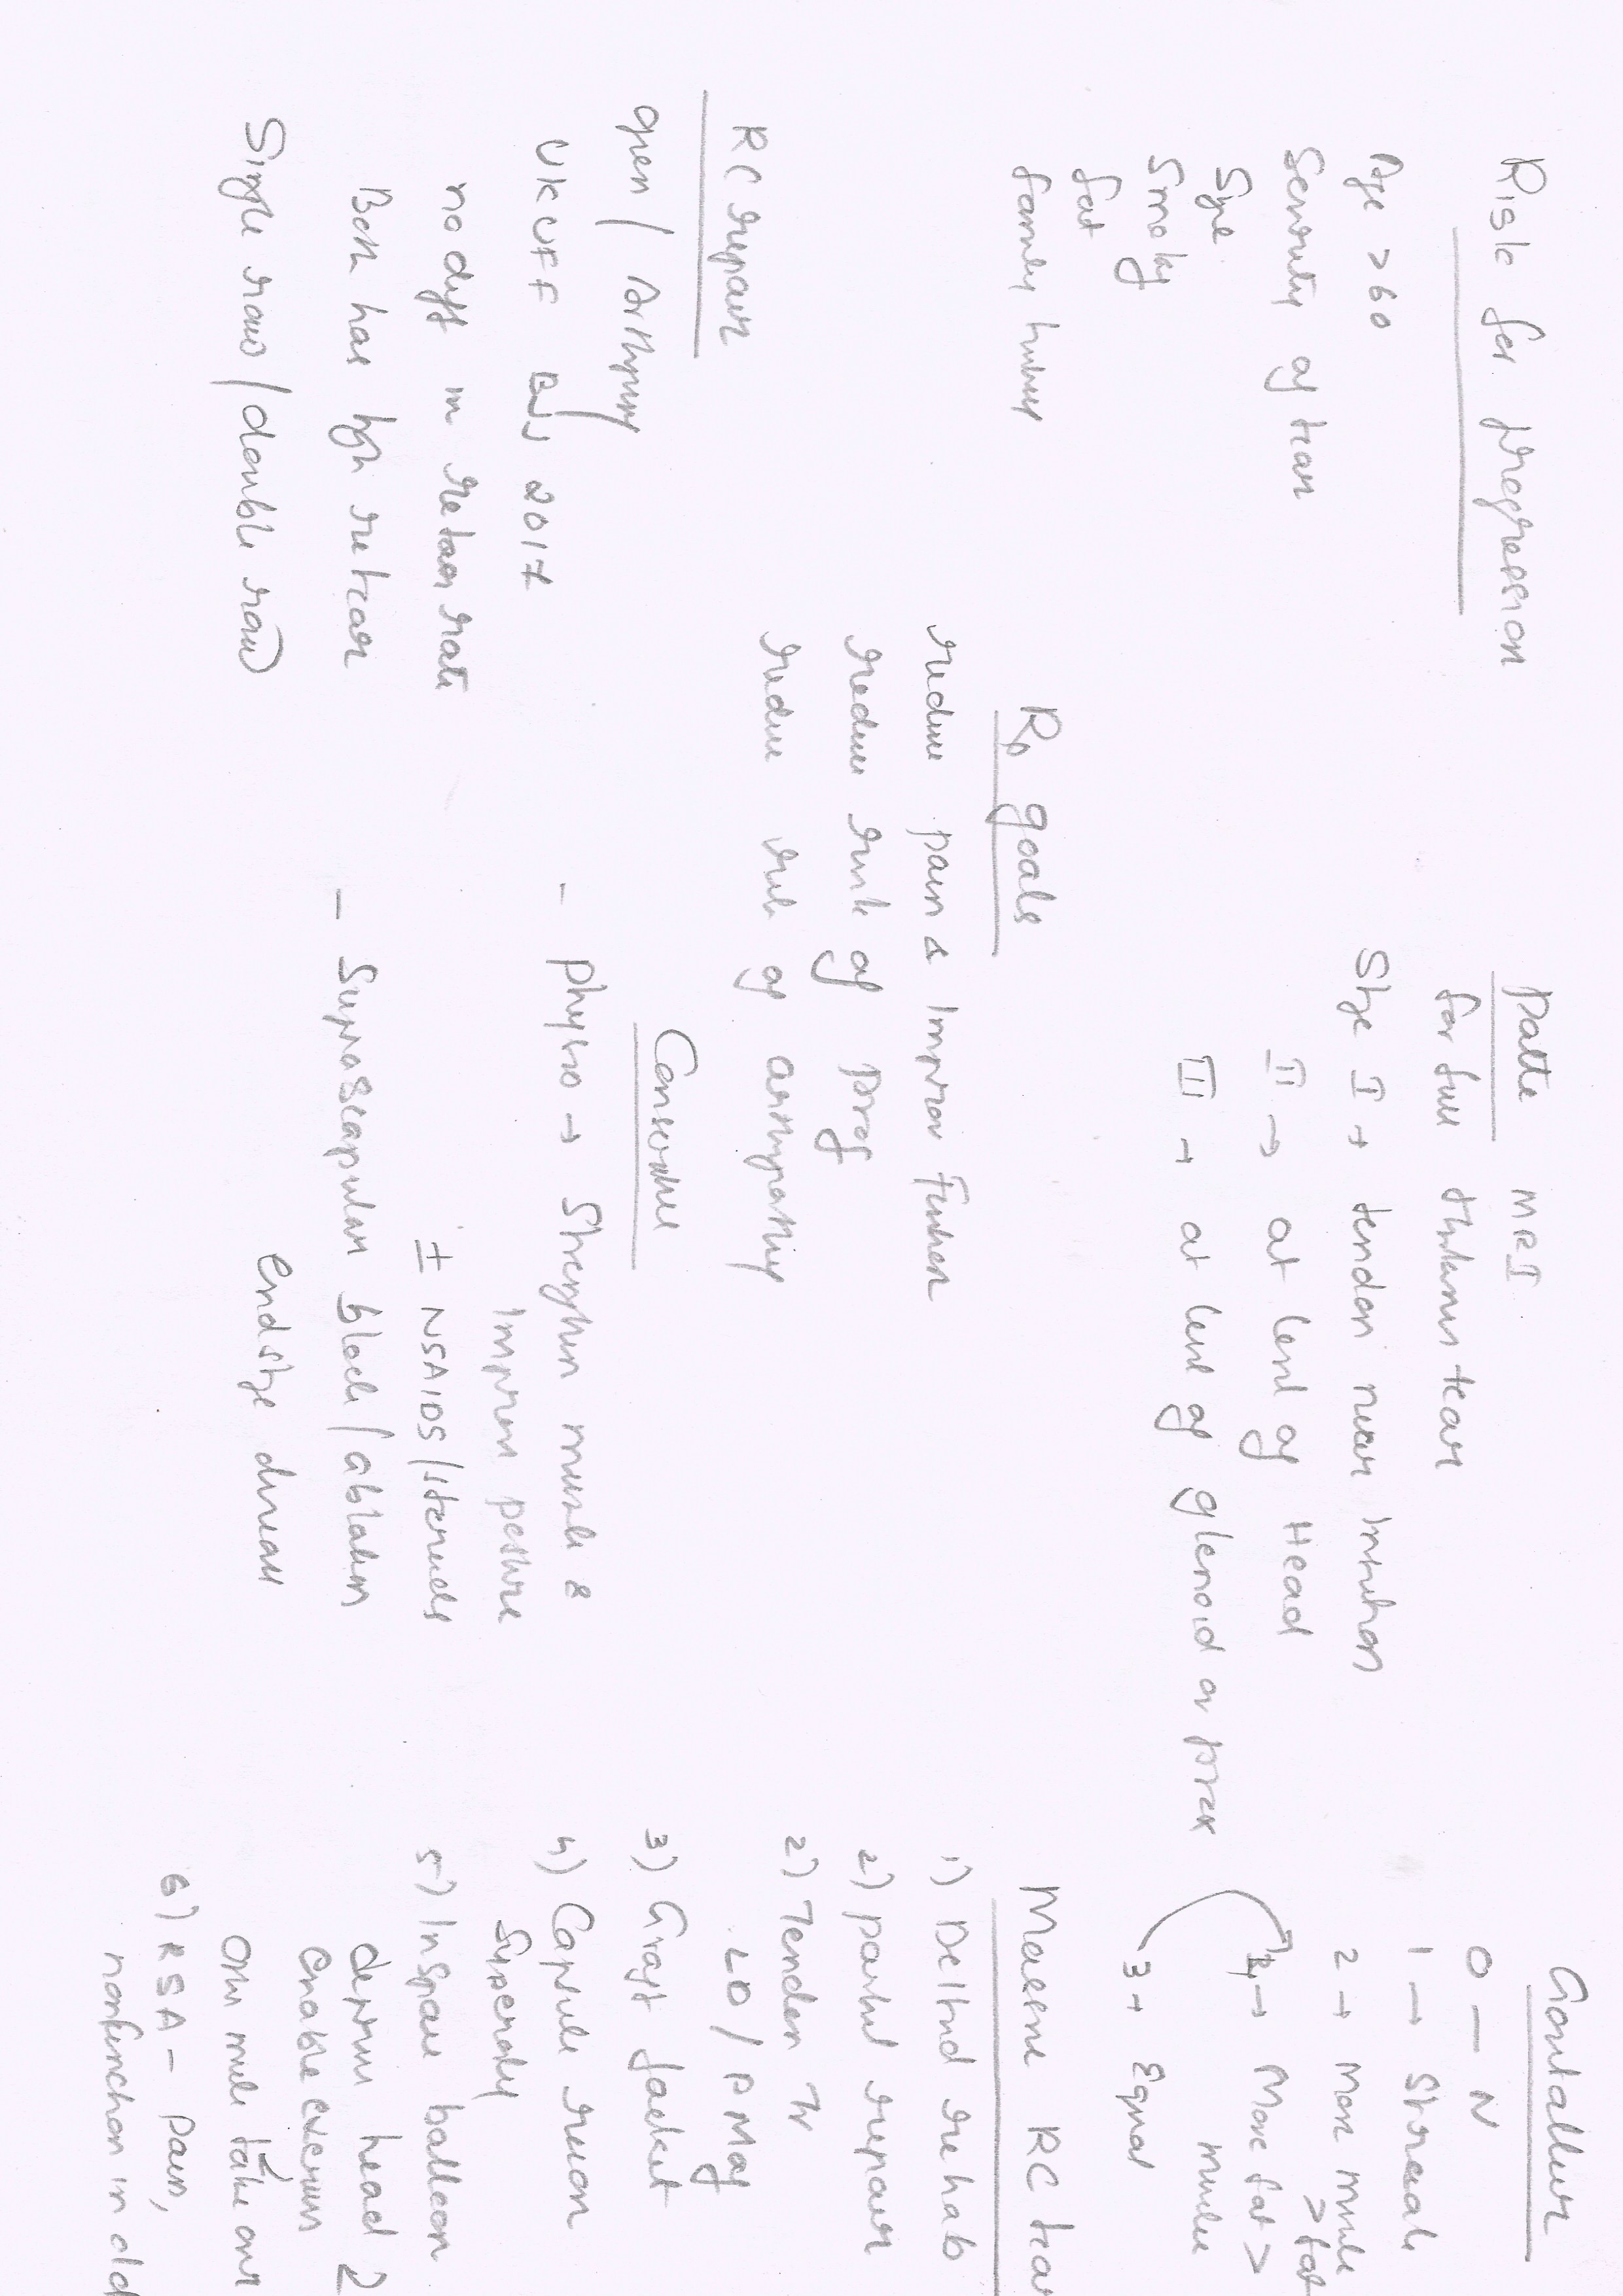 Risk for progression
Age > 60
Severity of tear
Size
Smoking
fat
family
Patte MRI
for full thickness tear
Stge I → tendon near insertion
II → at level of Head
III → at level of glenoid or prox
Goutallier
0 — N
1 → Streak
2 → More muscle
> fat
4 → More fat >
muscle
3 → Equal
Rx goals
reduce pain & Improve
reduce risk of prog
reduce risk of arthropathy
Conservative
- physio → Strengthen muscle &
Improve posture
± NSAIDS/steroids
- Suprascapular block/ablation
endstge disease
RC repair
open/
UKUFF BJJ 2017
no diff in retear rate
Both has high retear
Single row/double row
Massive RC tear
1) Deltoid rehab
2) partial repair
2) Tendon Tr
LD/P Maj
3) Graft Jacket
4) Capsule recon
Superiorly
5) InSpace balloon
depress head 2
enable
other muscle take over
6) RSA - Pain,
nonfunction in old